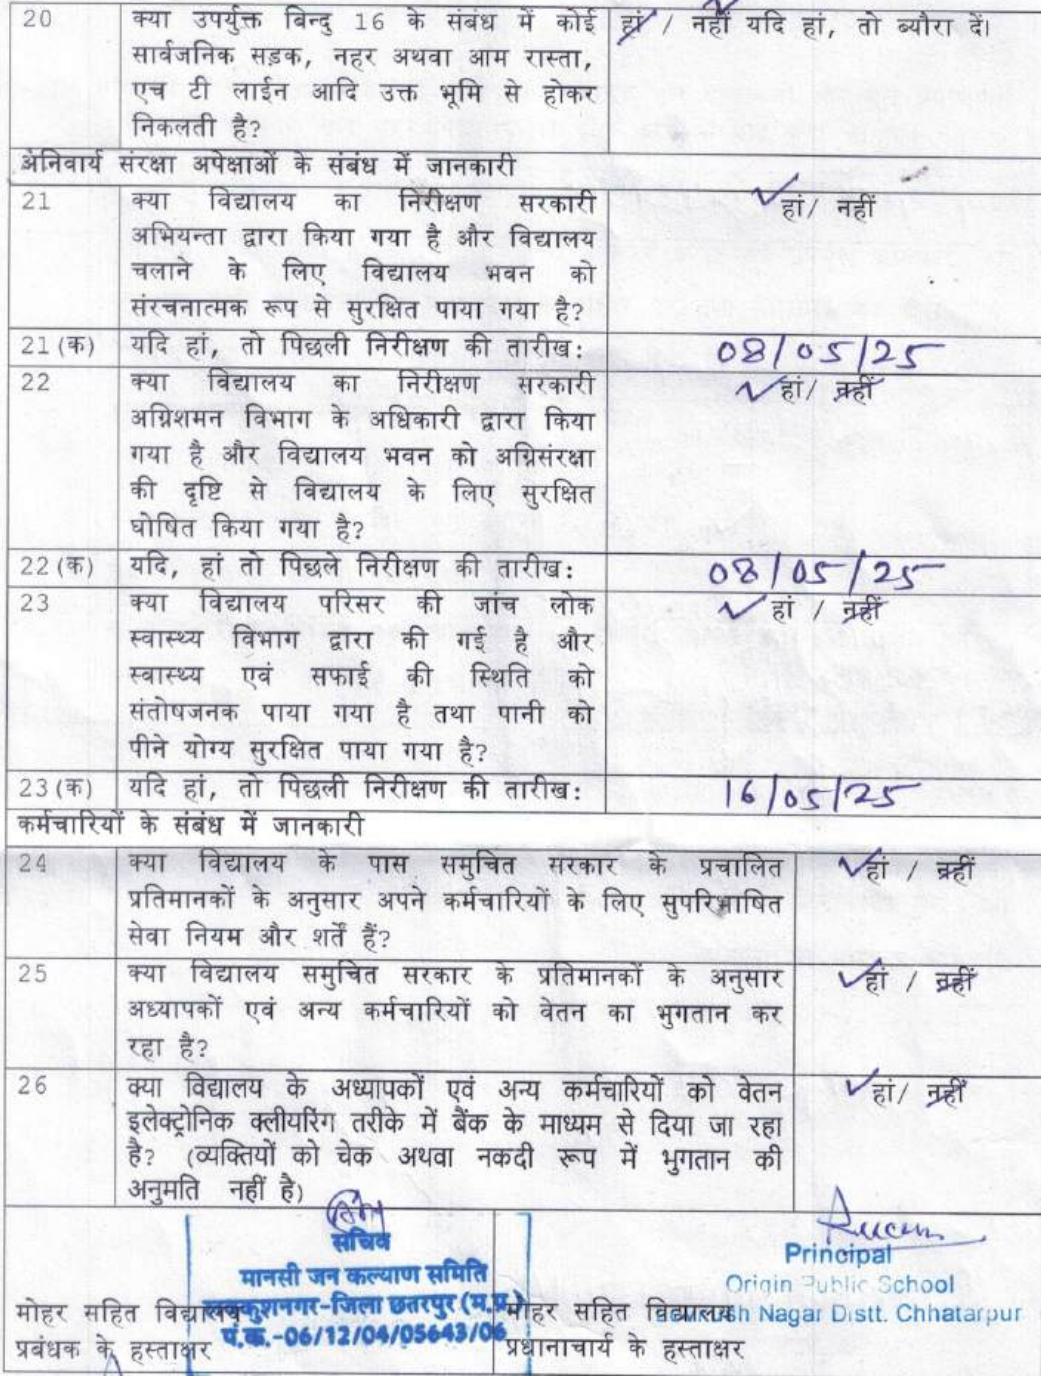 20 क्या उपर्युक्त बिन्दु 16 के संबंध में कोई हां / नहीं यदि हां, तो ब्यौरा दें।
सार्वजनिक सड़क, नहर अथवा आम रास्ता,
एच टी लाईन आदि उक्त भूमि से होकर
निकलती है?
अनिवार्य संरक्षा अपेक्षाओं के संबंध में जानकारी
21 क्या विद्यालय का निरीक्षण सरकारी ✓हां/ नहीं
अभियन्ता द्वारा किया गया है और विद्यालय
चलाने के लिए विद्यालय भवन को
संरचनात्मक रूप से सुरक्षित पाया गया है?
21(क) यदि हां, तो पिछली निरीक्षण की तारीख: 08/05/25
22 क्या विद्यालय का निरीक्षण सरकारी ✓हां/ नहीं
अग्निशमन विभाग के अधिकारी द्वारा किया
गया है और विद्यालय भवन को अग्निसंरक्षा
की दृष्टि से विद्यालय के लिए सुरक्षित
घोषित किया गया है?
22(क) यदि, हां तो पिछले निरीक्षण की तारीख: 08/05/25
23 क्या विद्यालय परिसर की जांच लोक ✓ हां / नहीं
स्वास्थ्य विभाग द्वारा की गई है और
स्वास्थ्य एवं सफाई की स्थिति को
संतोषजनक पाया गया है तथा पानी को
पीने योग्य सुरक्षित पाया गया है?
23(क) यदि हां, तो पिछली निरीक्षण की तारीख: 16/05/25
कर्मचारियों के संबंध में जानकारी
24 क्या विद्यालय के पास समुचित सरकार के प्रचालित ✓हां / नहीं
प्रतिमानकों के अनुसार अपने कर्मचारियों के लिए सुपरिभाषित
सेवा नियम और शर्तें हैं?
25 क्या विद्यालय समुचित सरकार के प्रतिमानकों के अनुसार ✓हां / नहीं
अध्यापकों एवं अन्य कर्मचारियों को वेतन का भुगतान कर
रहा है?
26 क्या विद्यालय के अध्यापकों एवं अन्य कर्मचारियों को वेतन ✓हां/ नहीं
इलेक्ट्रोनिक क्लीयरिंग तरीके में बैंक के माध्यम से दिया जा रहा
है? (व्यक्तियों को चेक अथवा नकदी रूप में भुगतान की
अनुमति नहीं है)
सचिव
मानसी जन कल्याण समिति
लवकुशनगर-जिला छतरपुर (म.प्र.)
पं.क.-06/12/04/05643/06
मोहर सहित विद्यालय
प्रबंधक के हस्ताक्षर
Principal
Origin Public School
Nagar Distt. Chhatarpur
मोहर सहित विद्यालय
प्रधानाचार्य के हस्ताक्षर